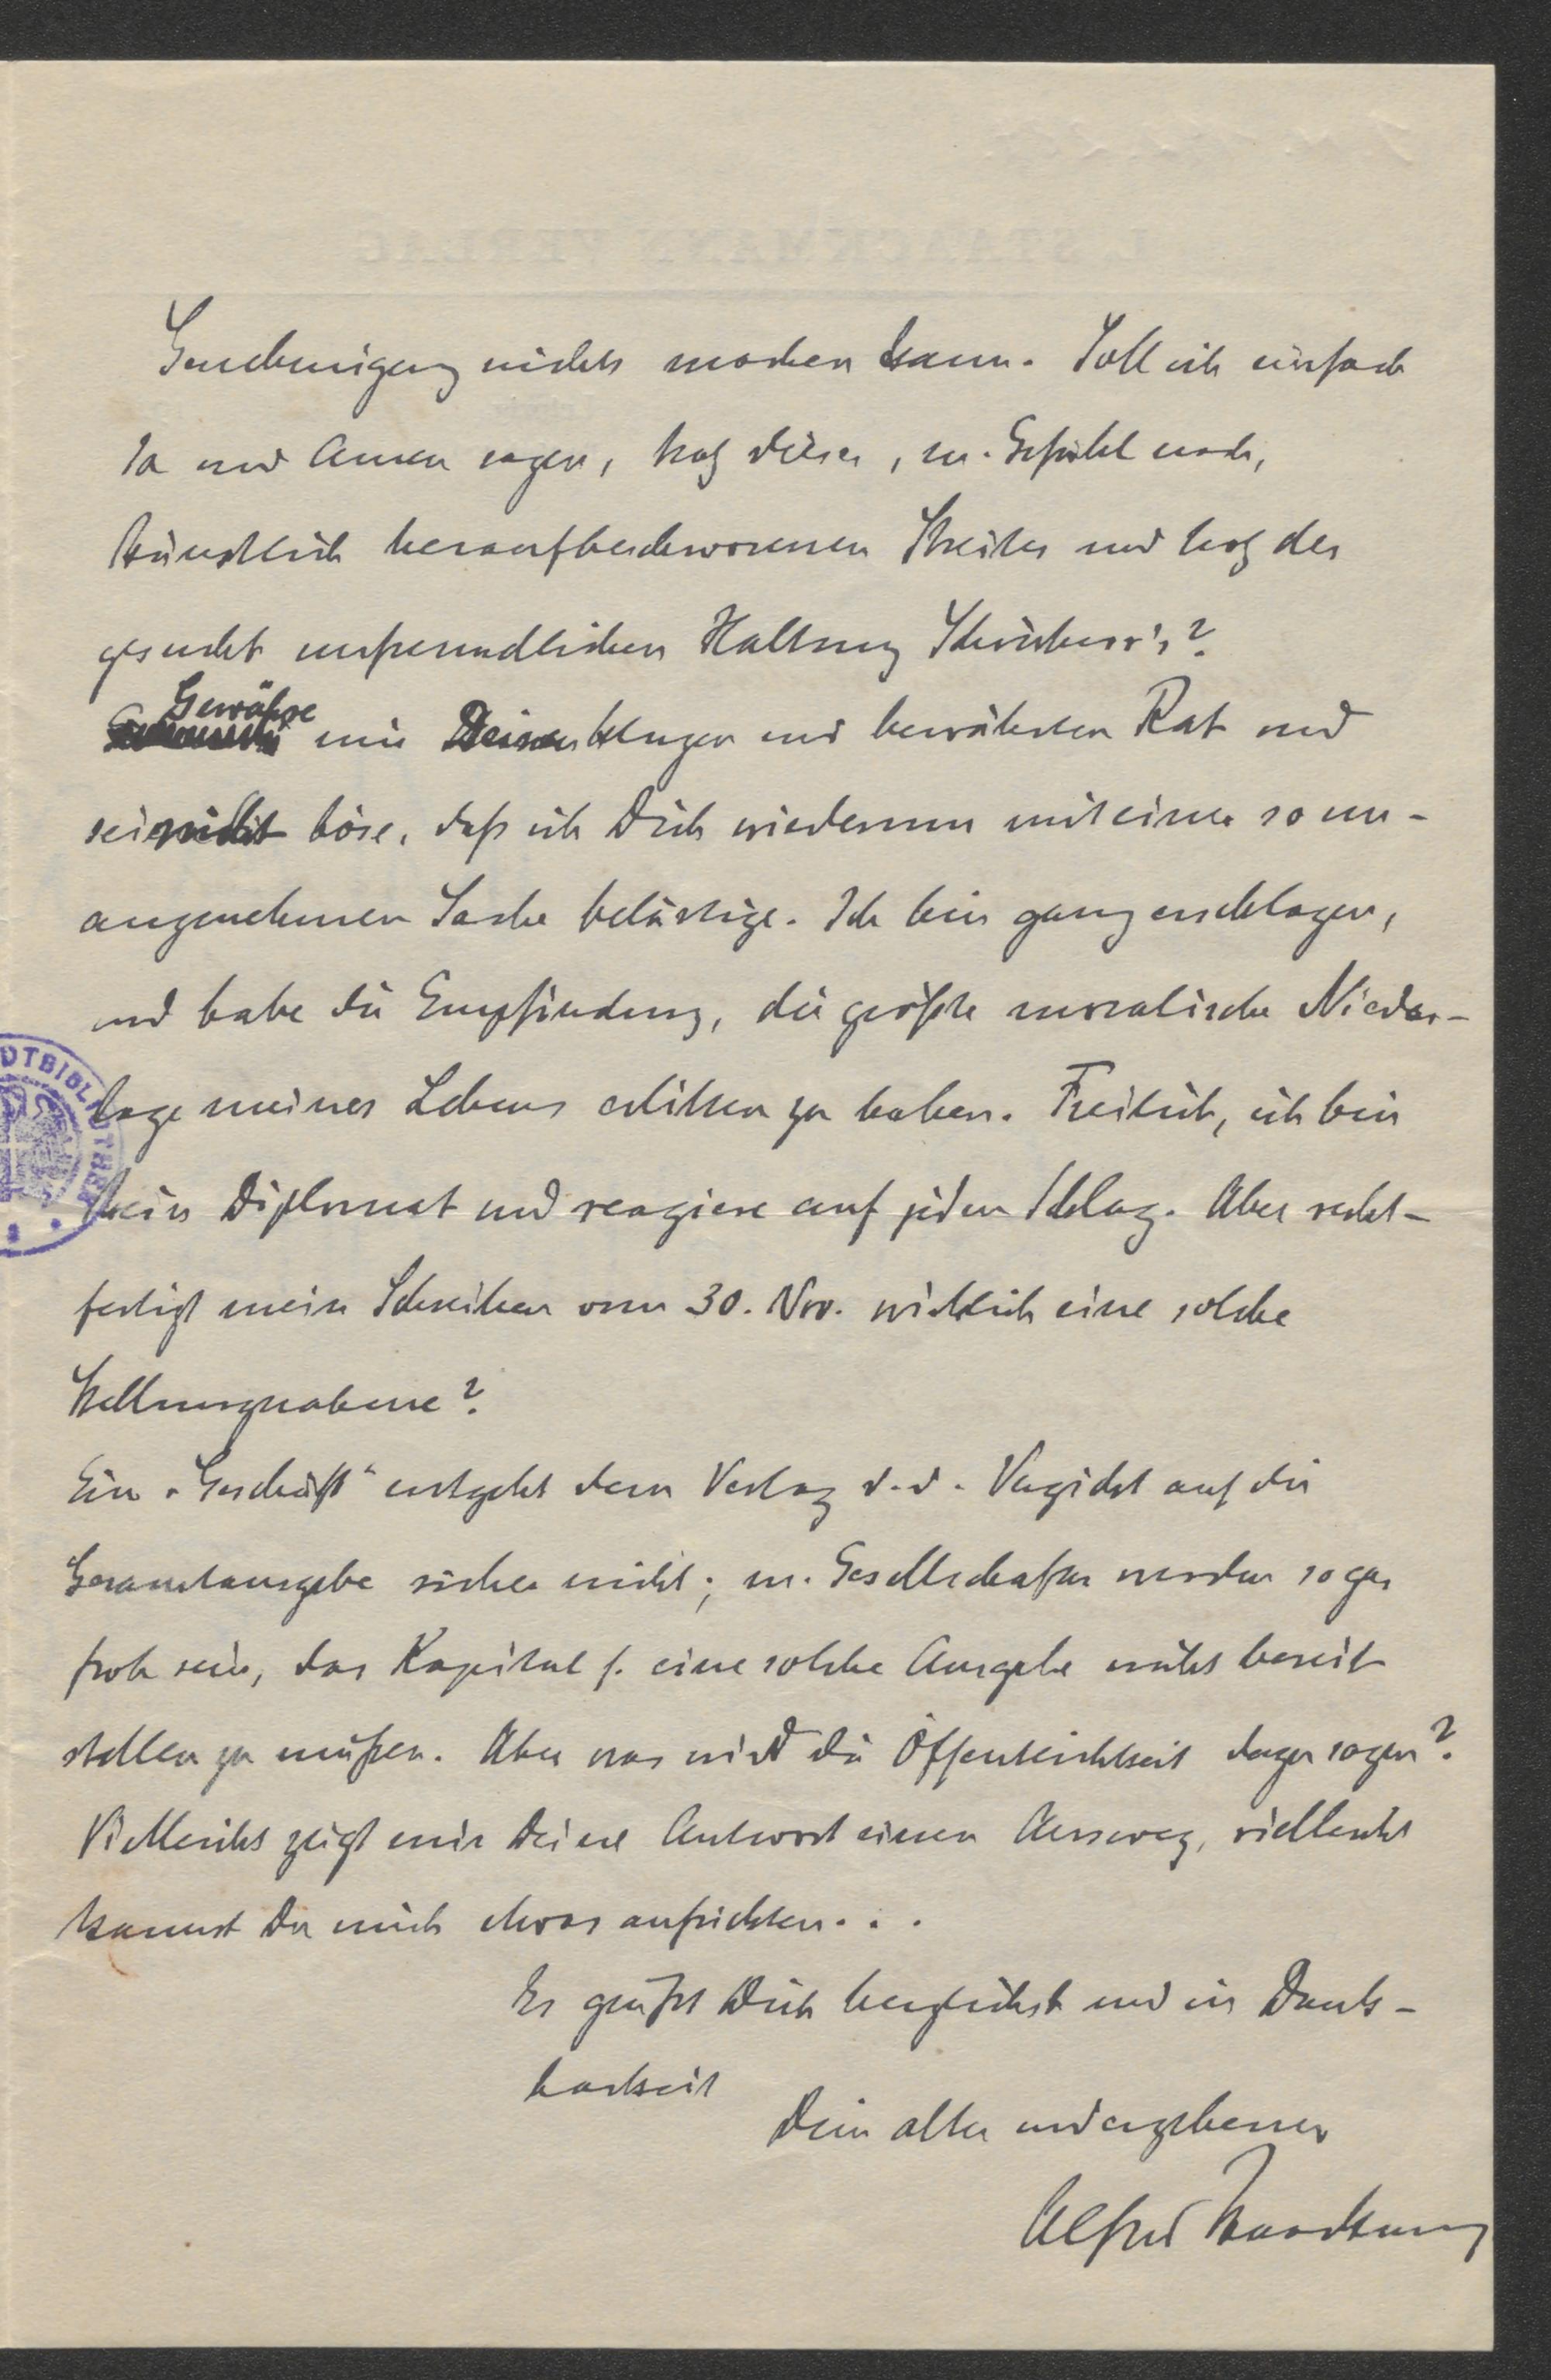 Genehmigung nichts machen kann. Soll ich einfach
Ja und Amen sagen, trotz dieses, m. Gefühl nach,
künstlich heraufbeschworenen Streites und trotz der
gesucht unfreundlichen Haltung
Gewähre mir Deinen klugen und bewährten Rat und
sei nicht böse, daß ich Dich wiederum mit einer so un-
angenehmen Sache belästige. Ich bin ganz erschlagen,
und habe die Empfindung, die größte moralische Nieder-
lage meines Lebens erlitten zu haben. Freilich, ich bin
kein Diplomat und reagiere auf jeden Schlag. Aber recht-
fertigt mein Schreiben vom 30. Nov. wirklich eine solche
Stellungnahme?
Ein „Geschäft“ entgeht dem Verlag d. d. Verzicht auf die
Gesamtausgabe sicher nicht; m. Gesellschafter werden sogar
froh sein, das Kapital f. eine solche Ausgabe nicht bereit
stellen zu müßen. Aber was wird die Öffentlichkeit dazu sagen?
Vielleicht zeigt mir Deine Antwort einen Ausweg, vielleicht
kannst Du mich etwas aufrichten...
Es grüßt Dich herzlichst und in Dank-
barkeit
Dein alter und ergebener
Alfred Staackmann
L. STAACKMANN VERLAG
DTBIBLIOTHEK